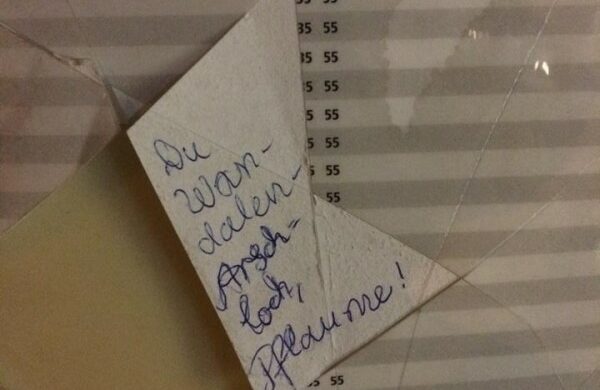 35 55
35 55
35 55
35 55
55
55
55
55
Du
Wan-
dalen-
Arsch-
loch,
Pflaume!
55